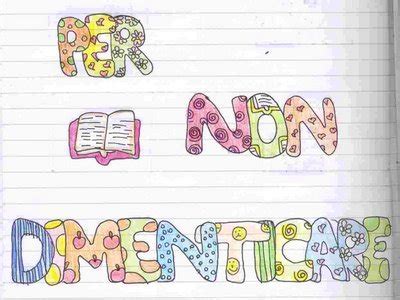 PER
NON
DIMENTICARE